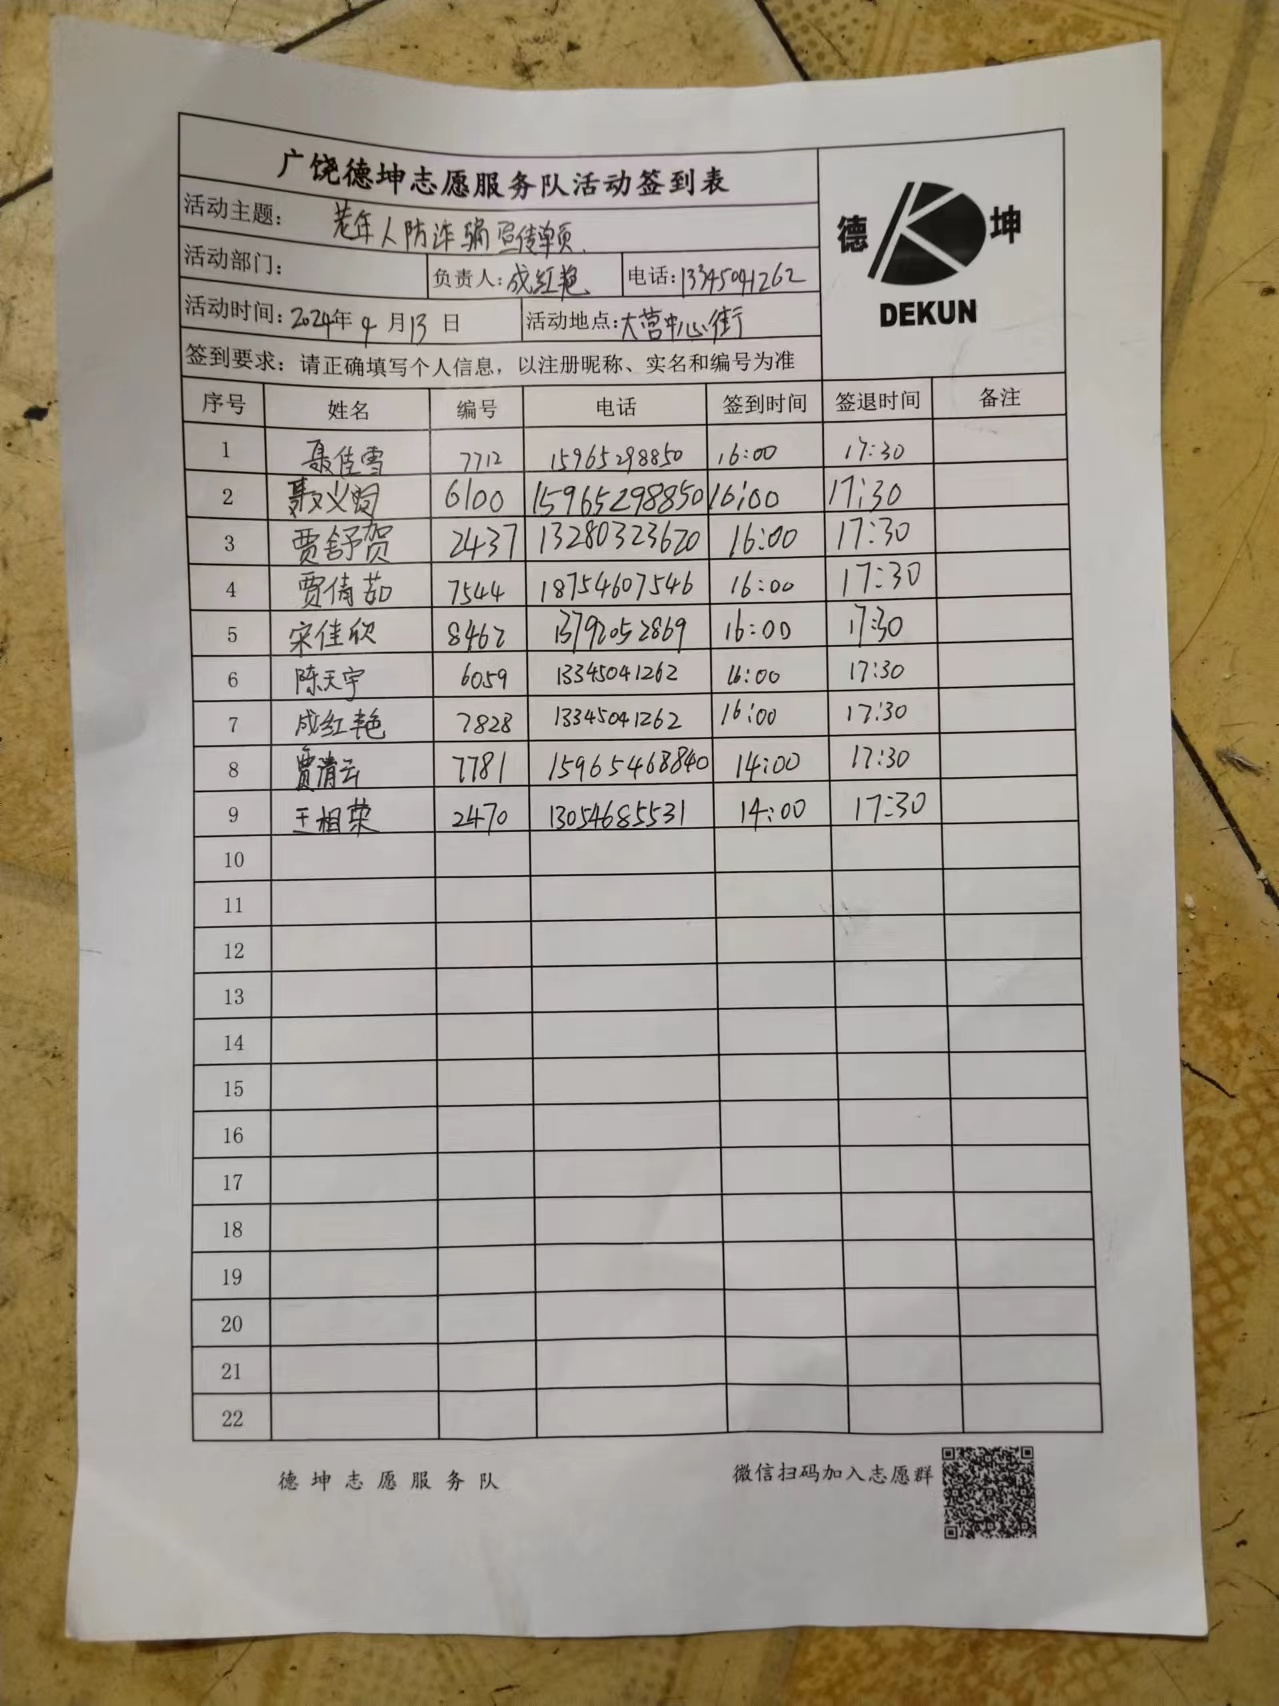 广饶德坤志愿服务队活动签到表
德 坤
DEKUN
活动主题: 老年人防诈骗宣传单页.
活动部门: 负责人:成红艳 电话:13345041262
活动时间:2024年4月13日 活动地点:大营中心街
签到要求:请正确填写个人信息,以注册昵称、实名和编号为准
序号 姓名 编号 电话 签到时间 签退时间 备注
1 聂佳雪 7712 15965298850 16:00 17:30
2 聂义 6100 15965298850 16:00 17:30
3 贾舒贺 2437 13280323620 16:00 17:30
4 贾倩茹 7544 18754607546 16:00 17:30
5 宋佳欣 8462 13792052869 16:00 17:30
6 陈天宇 6059 13345041262 16:00 17:30
7 成红艳 7828 13345041262 16:00 17:30
8 贾清云 7781 15965468840 14:00 17:30
9 王相荣 2470 13054685531 14:00 17:30
10
11
12
13
14
15
16
17
18
19
20
21
22
德坤志愿服务队 微信扫码加入志愿群